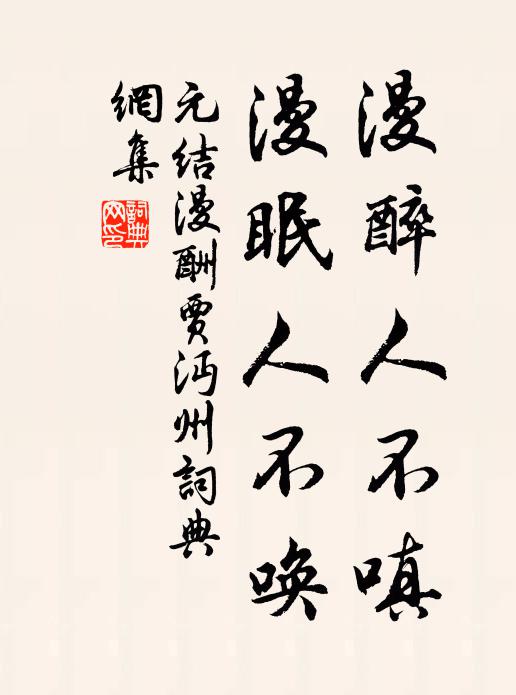 漫醉人不嗔
漫眠人不唤
元结漫酬贾沔州詞典
網集
詞典
网印